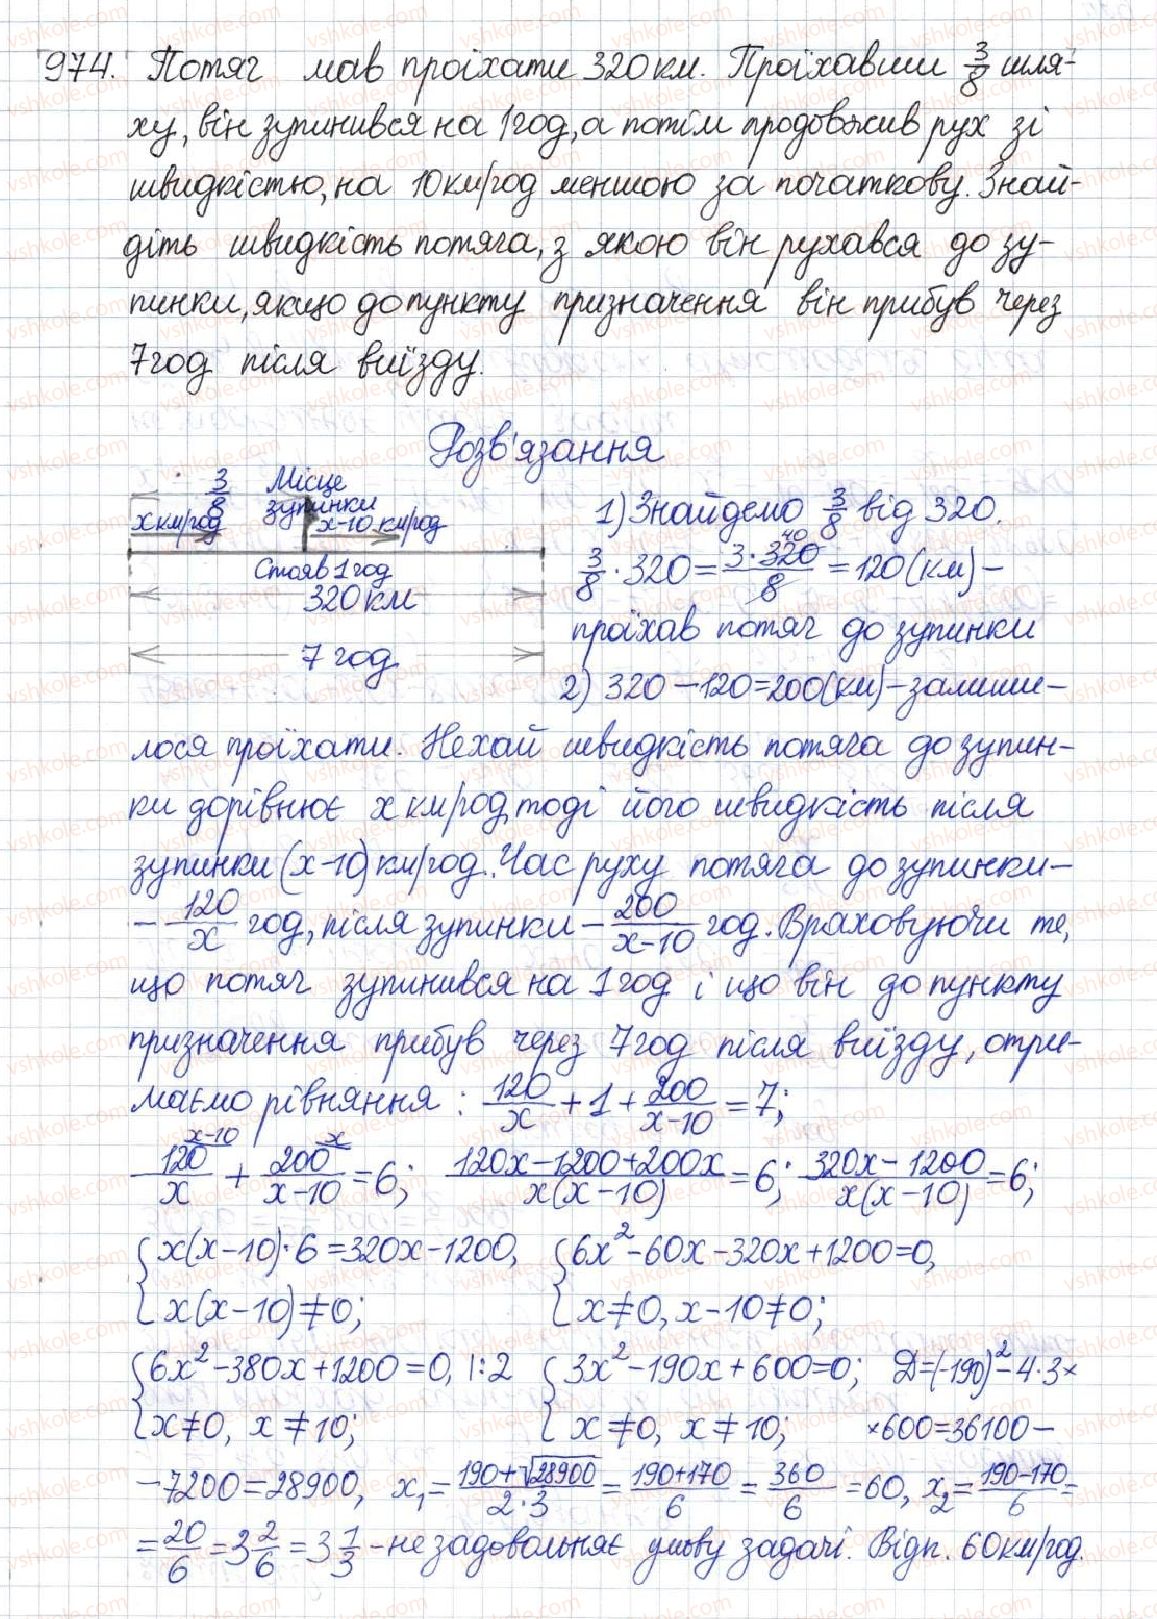 974. Потяг мав проїхати 320 км. Проїхавши 3/8 шля-
ху, він зупинився на 1 год, а потім продовжив рух зі
швидкістю, на 10 км/год меншою за початкову. Знай-
діть швидкість потяга, з якою він рухався до зу-
пинки, якщо до пункту призначення він прибув через
7 год після виїзду.
Розв'язання
3/8 Місце зупинки
x км/год x-10 км/год
Стояв 1 год
320 км
7 год
1) Знайдемо 3/8 від 320.
3/8 · 320 = 3·320/8 = 120 (км) –
40
проїхав потяг до зупинки
2) 320 – 120 = 200 (км) – залиши-
лося проїхати. Нехай швидкість потяга до зупин-
ки дорівнює x км/год, тоді його швидкість після
зупинки (x-10) км/год. Час руху потяга до зупинки –
– 120/x год, після зупинки – 200/(x-10) год. Враховуючи те,
що потяг зупинився на 1 год і що він до пункту
призначення прибув через 7 год після виїзду, отри-
маємо рівняння: 120/x + 1 + 200/(x-10) = 7;
x-10 x
120/x + 200/(x-10) = 6; (120x-1200+200x)/(x(x-10)) = 6; (320x-1200)/(x(x-10)) = 6;
{ x(x-10)·6 = 320x-1200, { 6x²-60x-320x+1200=0,
x(x-10)≠0; x≠0, x-10≠0;
{ 6x²-380x+1200=0, |:2 { 3x²-190x+600=0; Д=(-190)²-4·3×
x≠0, x≠10; x≠0, x≠10; ×600=36100–
–7200=28900, x₁=(190+√28900)/(2·3)=(190+170)/6=360/6=60, x₂=(190-170)/6=
=20/6=3 2/6=3 1/3 – не задовольняє умову задачі. Відп. 60 км/год.